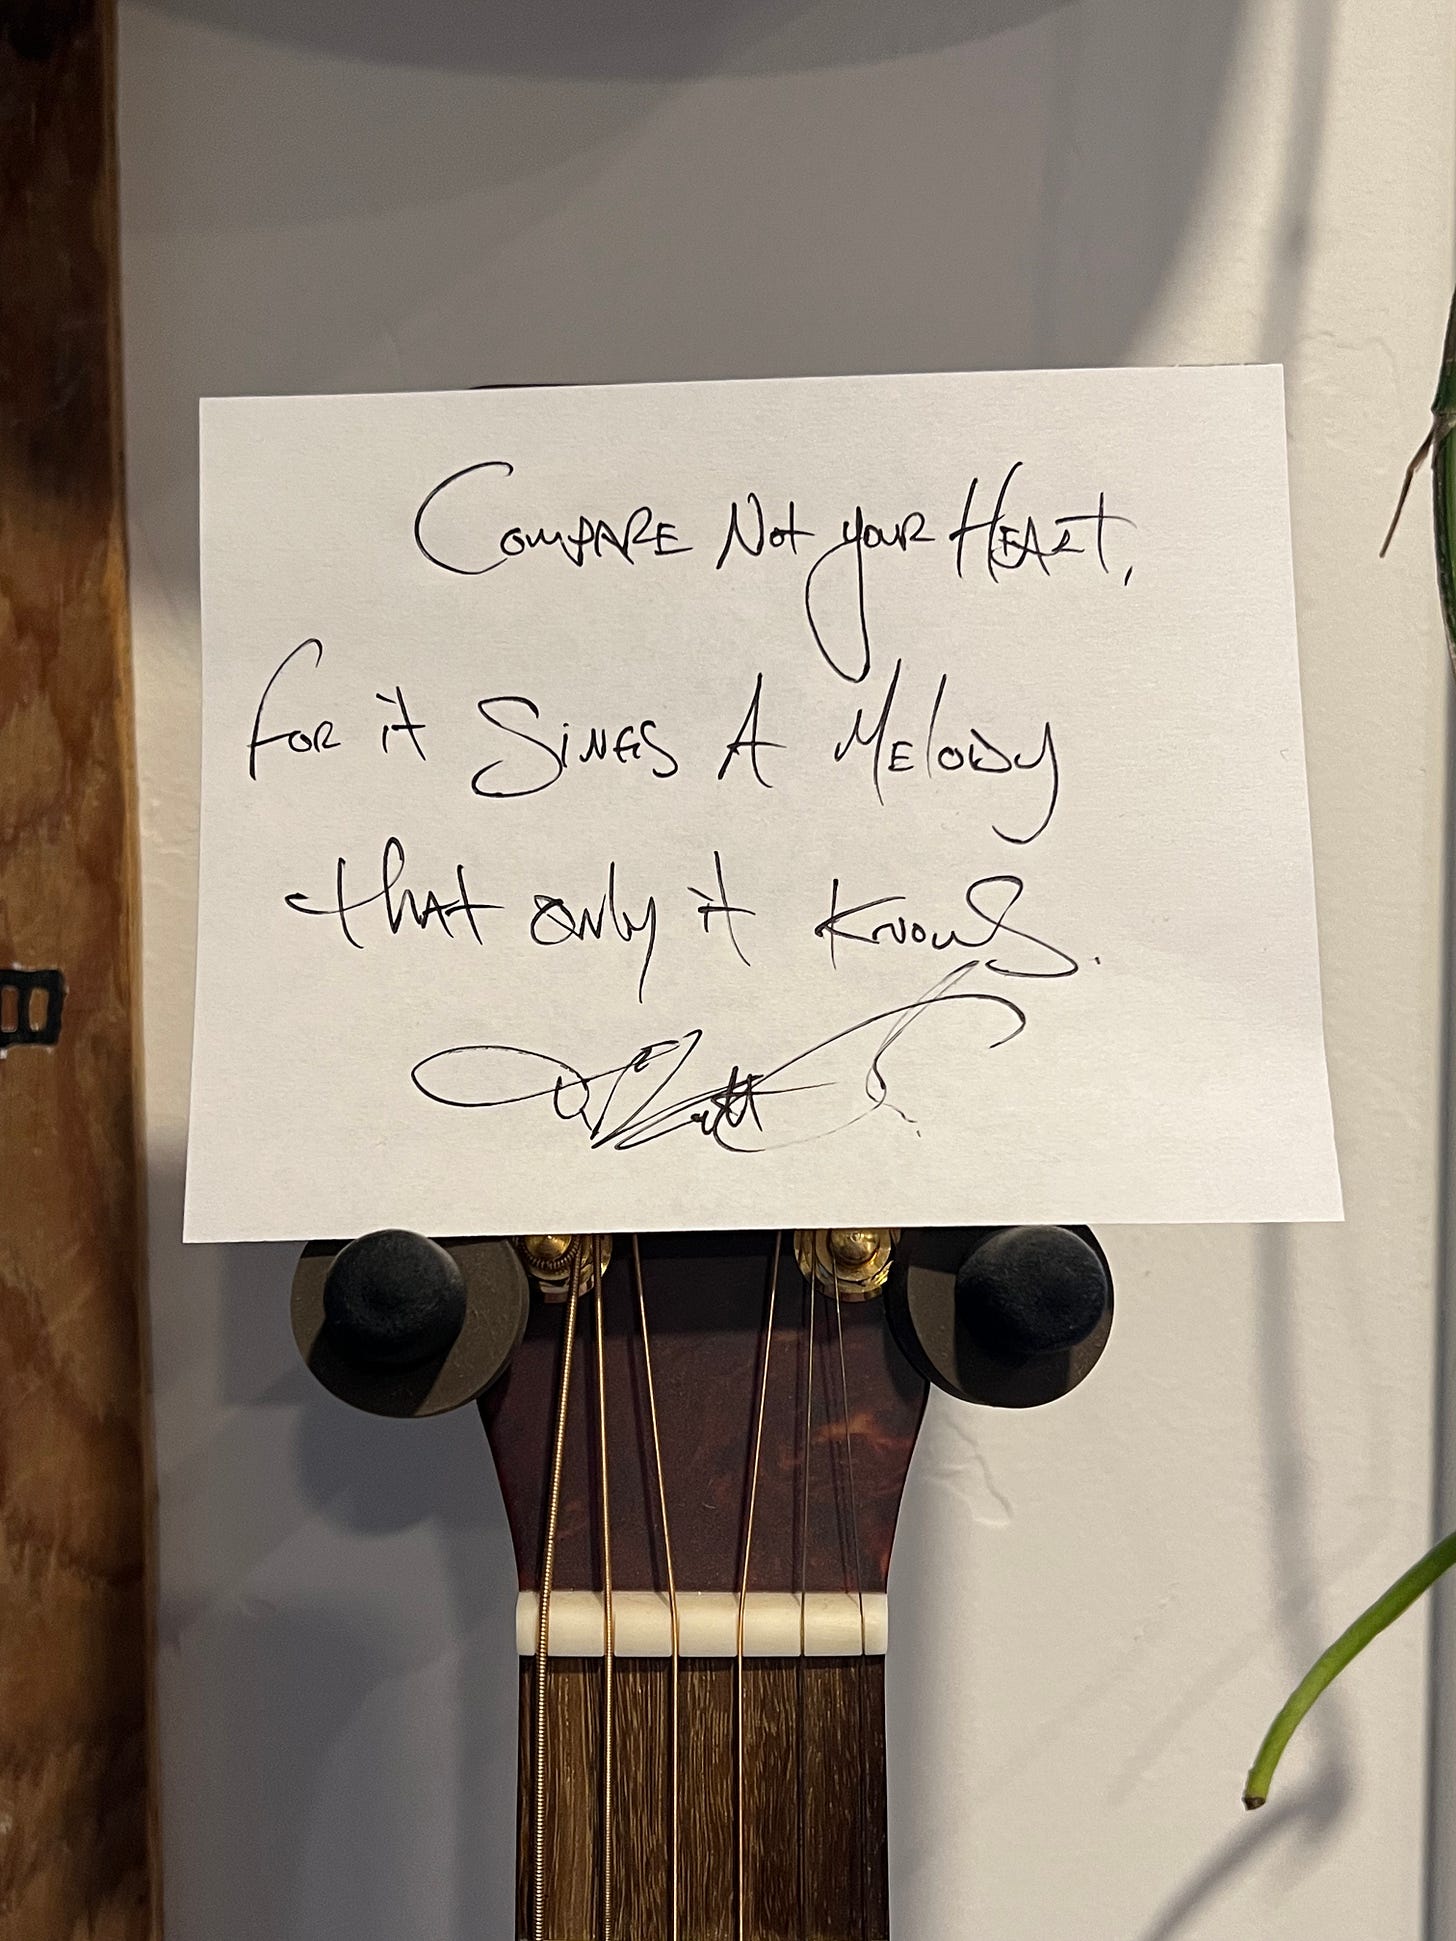 Compare Not your Heart,
for it Sings A Melody
that only it Knows.